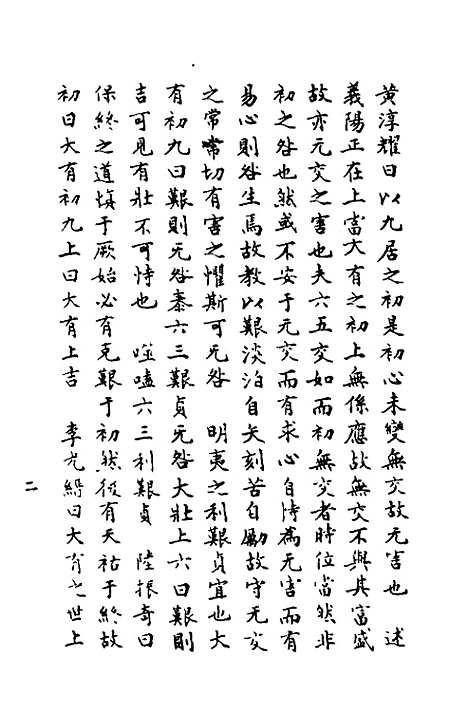 黄淳耀曰以九居之初是初心未變無交故无害也　述
義陽正在上當大有之初上無係應故無交不與其富盛
故亦无交之害也夫六五交如而初無交者時位當然非
初之咎也然或不安于无交而有求心自恃爲无害而有
易心則咎生焉故教以艱淡泊自矢刻苦自勵故守无交
之常常切有害之懼斯可无咎　明夷之利艱貞宜也大
有初九曰艱則无咎泰六三艱貞无咎大壯上六曰艱則
吉可見有壯不可恃也　噬嗑六三利艱貞　陸振奇曰
保終之道慎于厥始必有克艱于初然後有天祐于終故
初曰大有初九上曰大有上吉　李光縉曰大有之世上
二